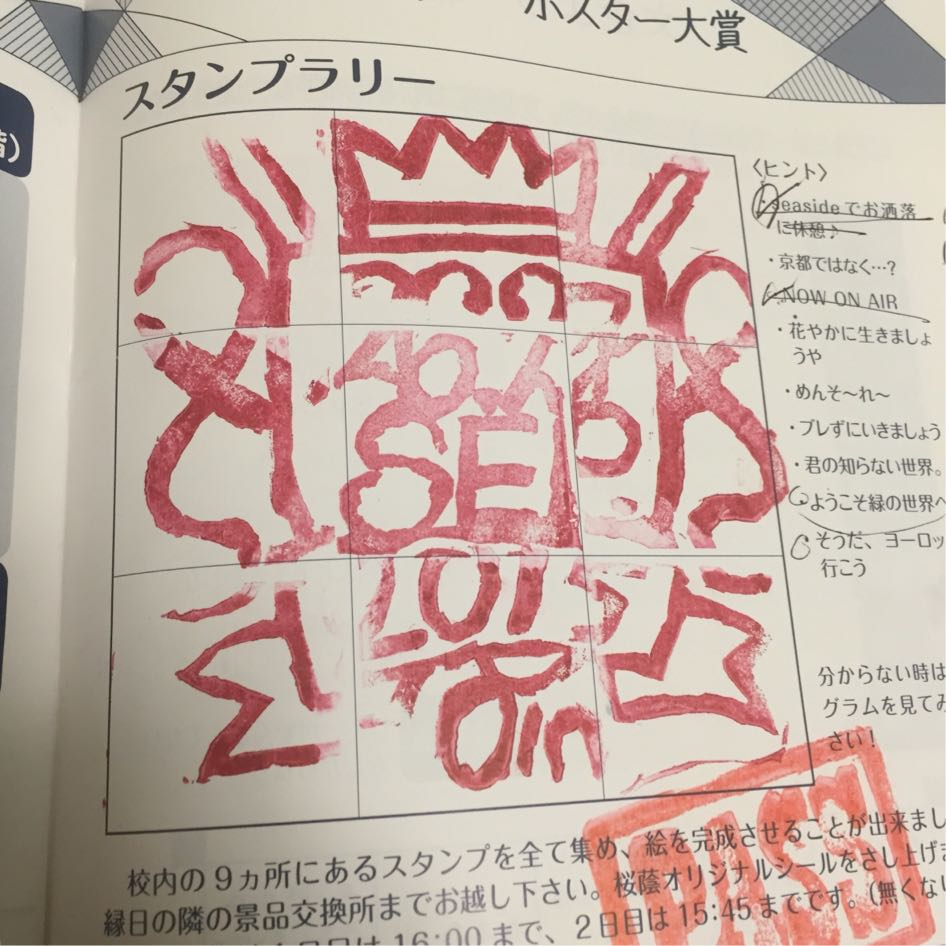 ポスター大賞
スタンプラリー
〈ヒント〉
・seasideでお洒落
に休憩♪
・京都ではなく…?
・NOW ON AIR
・花やかに生きましょ
うや
・めんそ〜れ〜
・ブレずにいきましょう
・君の知らない世界。
・ようこそ緑の世界へ
・そうだ、ヨーロッ
行こう
分からない時は
グラムを見てみ
さい!
PASS
校内の9ヵ所にあるスタンプを全て集め、絵を完成させることが出来まし
縁日の隣の景品交換所までお越し下さい。桜蔭オリジナルシールをさし上げま
16:00まで、2日目は15:45までです。(無くない